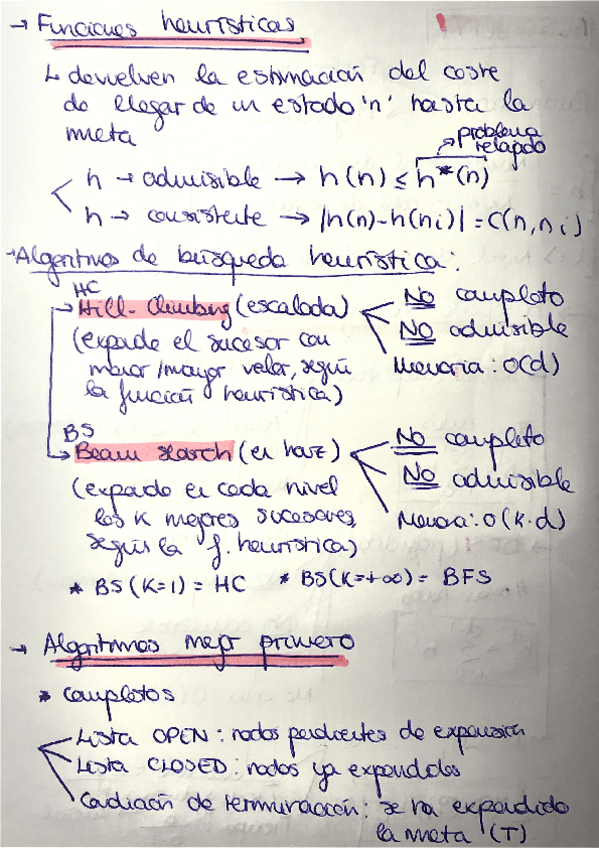 → Funciones heurísticas
↳ devuelven la estimación del coste
de llegar de un estado 'n' hasta la
meta
→ problema
relajado
h → admisible → h(n) ≤ h*(n)
h → consistente → |h(n)-h(ni)| = C(n,ni)
→ Algoritmos de búsqueda heurística:
HC
→ Hill-Climbing (escalada)
NO completo
NO admisible
Memoria: O(d)
(expande el sucesor con
menor/mayor valor, según
la función heurística)
BS
→ Beam search (en haz)
NO completo
NO admisible
Memoria: O(k·d)
(expande en cada nivel
los K mejores sucesores,
según la f. heurística)
* BS(K=1) = HC * BS(K=+∞) = BFS
→ Algoritmos mejor primero
* completos
Lista OPEN: nodos pendientes de expansión
Lista CLOSED: nodos ya expandidos
Condición de terminación: se ha expandido
la meta (T)